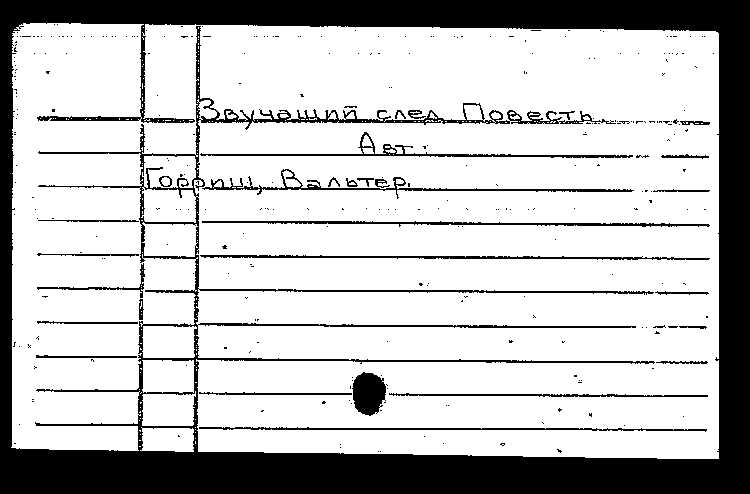 Звучащий след Повесть.
Авт.:
Горриш, Вальтер.